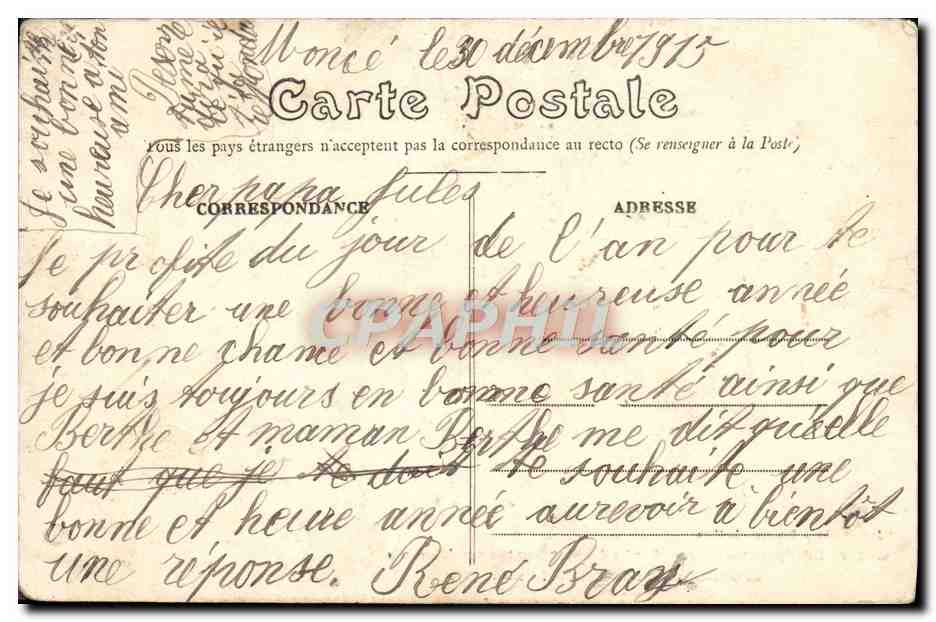 Moncé le 30 décembre 1915
Carte Postale
Tous les pays étrangers n'acceptent pas la correspondance au recto (Se renseigner à la Poste)
Cher papa Jules
CORRESPONDANCE
ADRESSE
Je profite du jour de l'an pour te
souhaiter une bonne et heureuse année
et bonne chance et bonne santé pour
je suis toujours en bonne santé ainsi que
Berthe et maman Berthe me dit qu'elle
faut que je te dois te souhaite une
bonne et heure année aurevoir à bientôt
une réponse. René Bray
Je souhaite
une bonne
heureuse a ton
ami
CPAPHIL